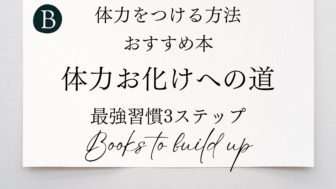 B
体力をつける方法
おすすめ本
体力お化けへの道
最強習慣3ステップ
Books to build up